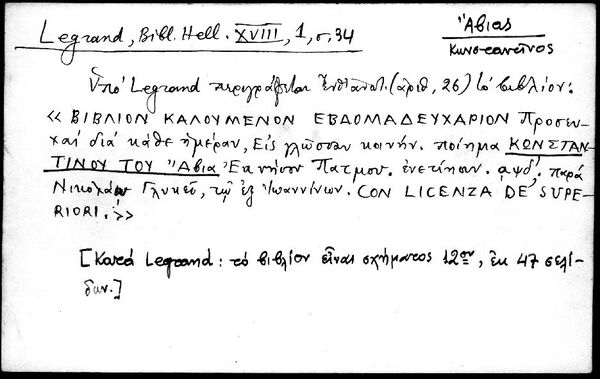 Legrand, Bibl. Hell. XVIII, 1, σ. 34
Ἄβιας
Κωνσταντῖνος
Ὑπό Legrand περιγράφεται ἐνθ' ἀνωτ. (ἀριθ. 26) τό βιβλίον:
« ΒΙΒΛΙΟΝ ΚΑΛΟΥΜΕΝΟΝ ΕΒΔΟΜΑΔΕΥΧΑΡΙΟΝ Προσευ-
χαί διά κάθε ἡμέραν, Εἰς γλῶσσαν κοινήν. ποίημα ΚΩΝΣΤΑΝ-
ΤΙΝΟΥ ΤΟΥ Ἄβια Ἐκ νήσου Πάτμου. ἐνετίησιν. αψδ'. παρά
Νικολάῳ Γλυκεῖ, τῷ ἐξ Ἰωαννίνων. CON LICENZA DE SUPE-
RIORI. »
[Κατά Legrand: τό βιβλίον εἶναι σχήματος 12ου, ἐκ 47 σελί-
δων.]